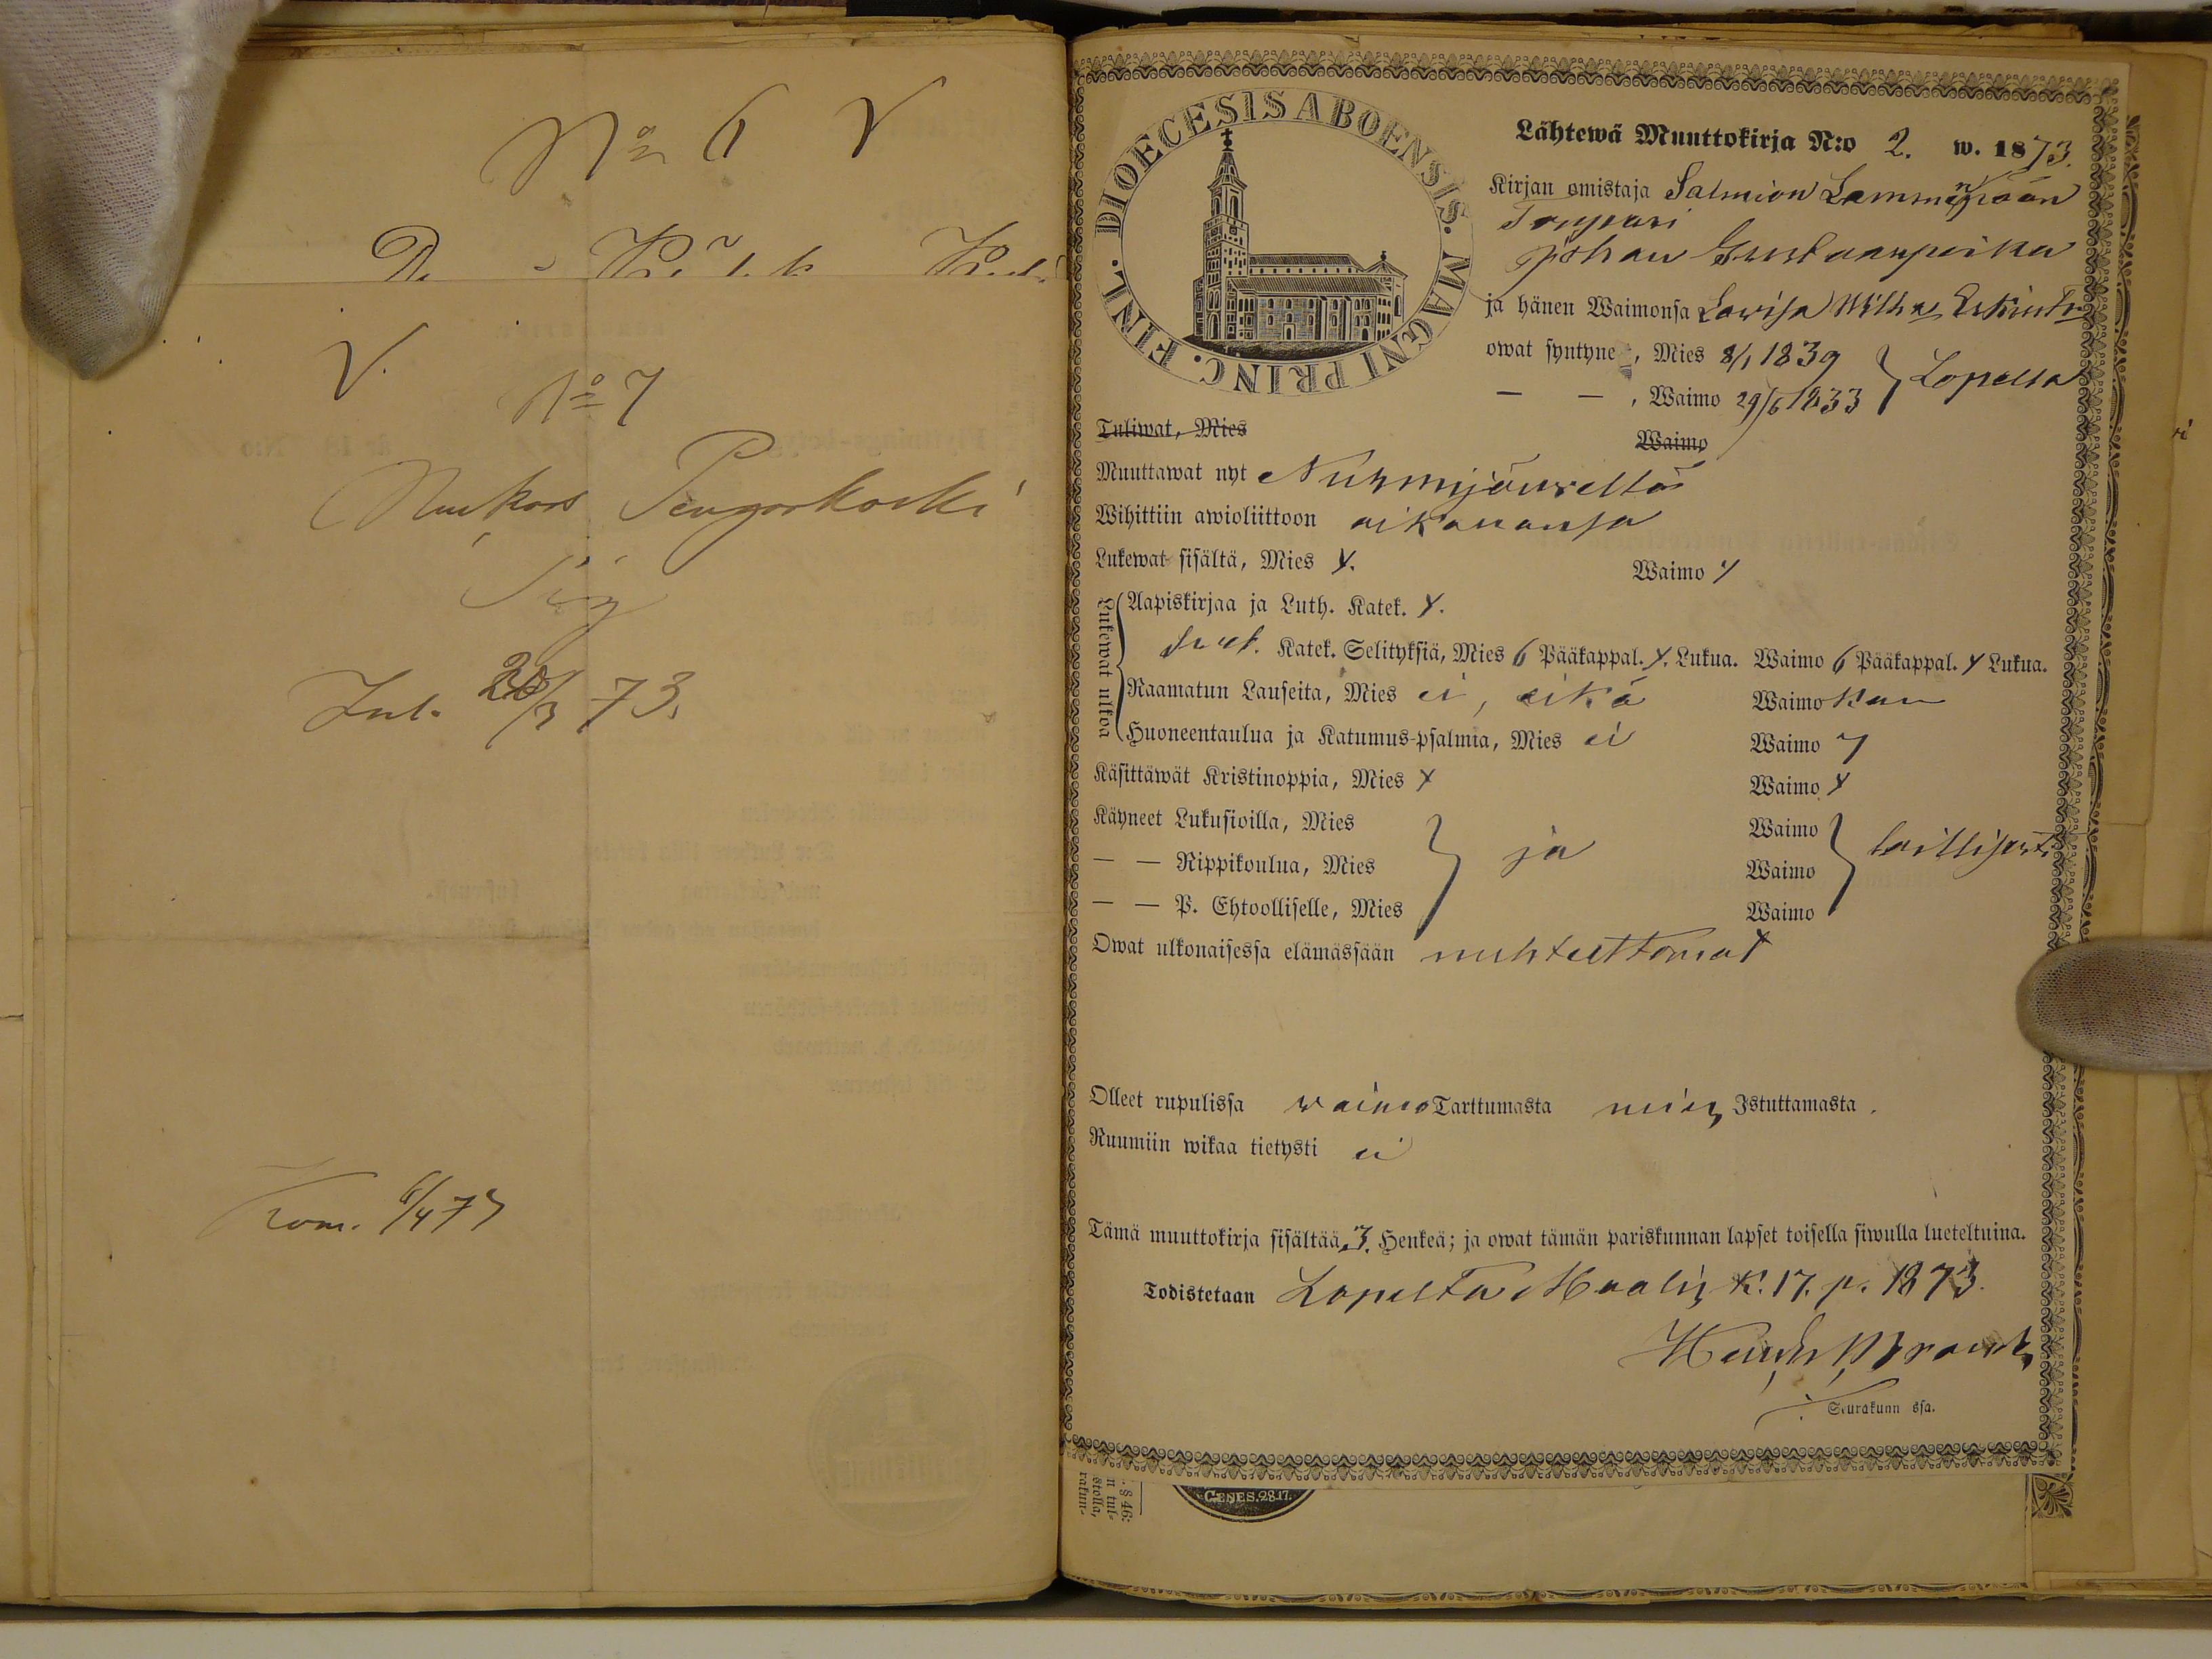 No 6 V
V.
No 7
Nurkos
Inl. 20/3 73.
Kom. 6/4 73
DIOECESIS ABOENSIS. MAGNI PRINC. FINL.
Lähtewä Muuttokirja N:o 2. w. 1873.
Kirjan omistaja Salmion
Torppari
Johan Gustaanpoika
ja hänen Waimonsa Lowisa Wilh:a
owat syntyne, Mies 8/1 1839
Lopella
— — , Waimo 29/6 1833
Tuliwat, Mies Waimo
Muuttawat nyt Nurmijärweltä
Wihittiin awioliittoon aikanansa
Lukewat sisältä, Mies Y. Waimo Y
Lukewat ulkoa
Aapiskirjaa ja Luth. Katek. Y.
Katek. Selityksiä, Mies 6 Pääkappal. Y. Lukua. Waimo 6 Pääkappal. Y Lukua.
Raamatun Lauseita, Mies ei, eikä Waimo kan
Huoneentaulua ja Katumus-psalmia, Mies ei Waimo Y
Käsittäwät Kristinoppia, Mies Y Waimo Y
Käyneet Lukusioilla, Mies Waimo
— — Rippikoulua, Mies ja Waimo laillisesti
— — P. Ehtoolliselle, Mies Waimo
Owat ulkonaisessa elämässään nuhteettomat
Olleet rupulissa waimo Tarttumasta mies Istuttamasta.
Ruumiin wikaa tietysti ei
Tämä muuttokirja sisältää 3. Henkeä; ja owat tämän pariskunnan lapset toisella siwulla lueteltuina.
Todistetaan Lopelta Maalis K. 17. p. 1873.
Seurakunn ssa.
GENES. 28.17.
. § 46:
n tul-
stolla,